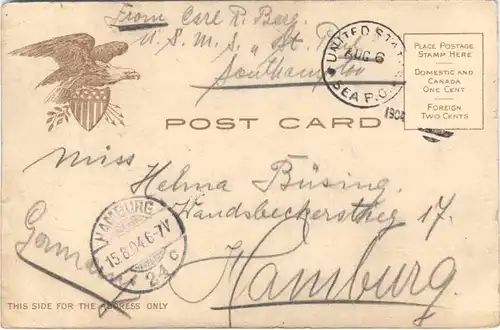 From Carl R. Berg.
U.S.M.S. "St.
Southampton
UNITED STA
AUG 6
SEA P.O.
1904
PLACE POSTAGE
STAMP HERE
DOMESTIC AND
CANADA
ONE CENT
FOREIGN
TWO CENTS
POST CARD
Miss
Helma Büsing.
Wandsbeckerstieg 17.
Hamburg
Germany
HAMBURG
15.8.04.6-7V
24 c
THIS SIDE FOR THE ADDRESS ONLY